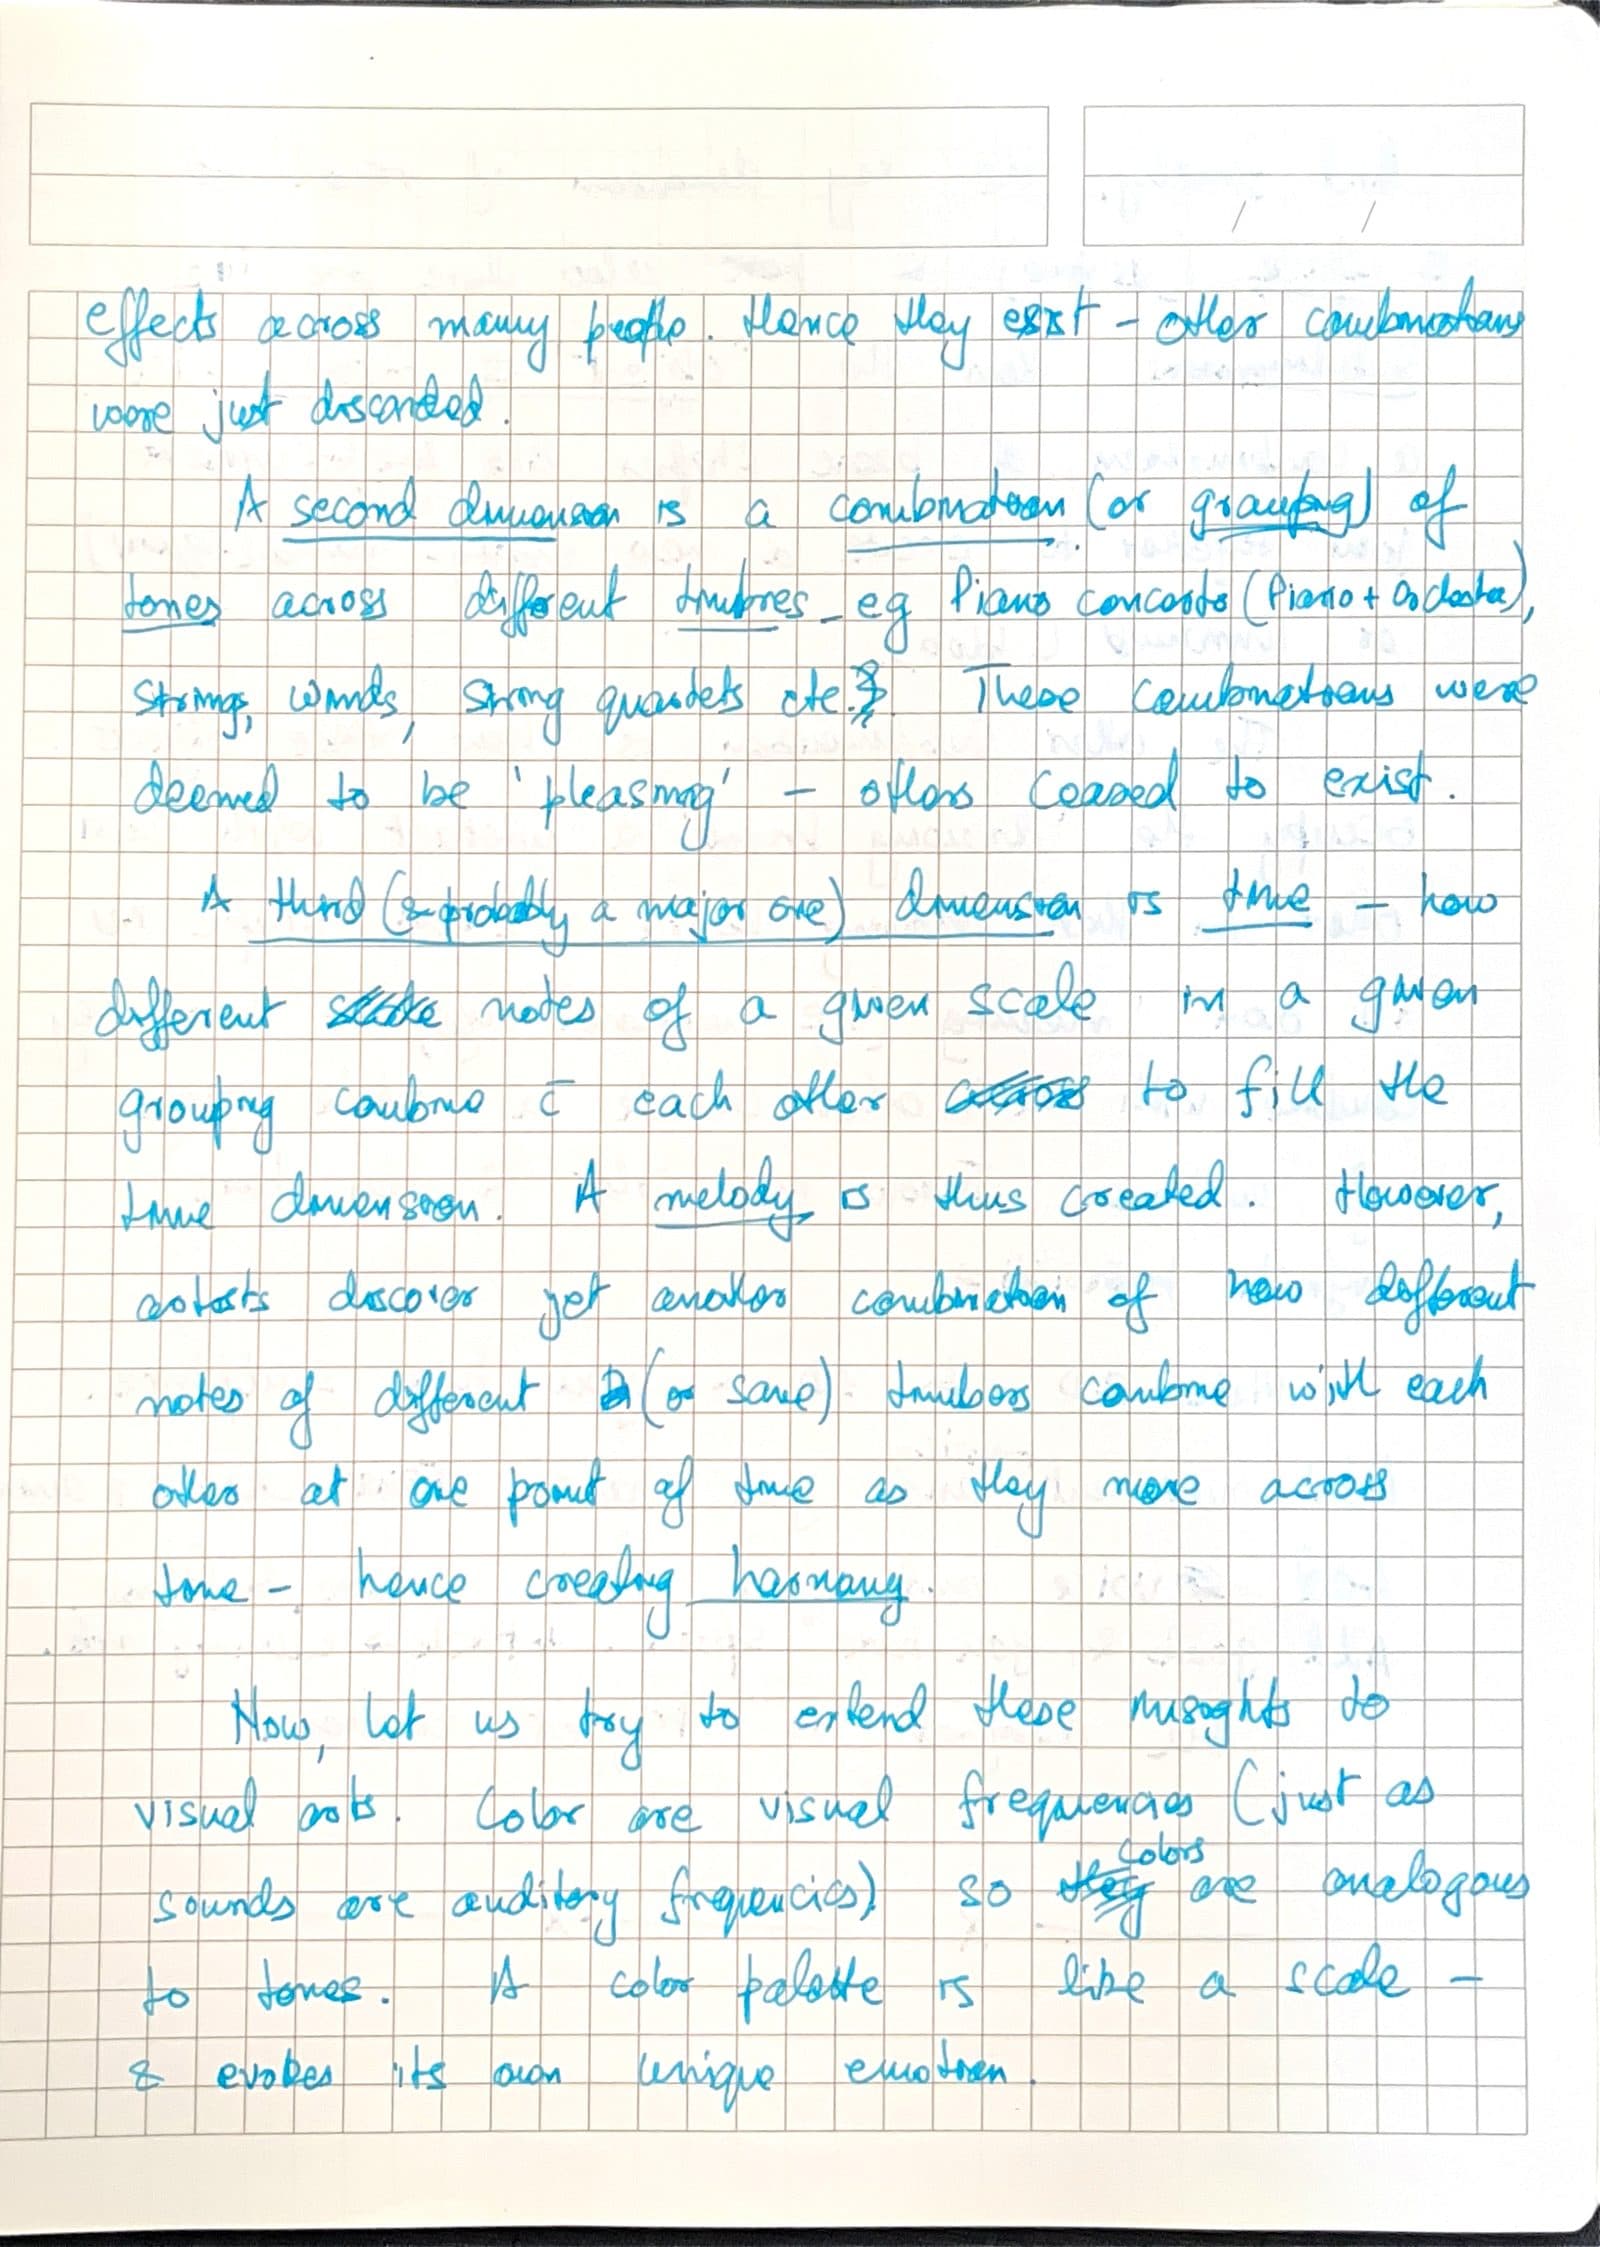 effects across many people. Hence they exist - other combinations
were just discarded.
A second dimension is a combination (or grouping) of
tones across different timbres - eg Piano concerto (Piano + Orchestra),
strings, winds, string quartets etc. These combinations were
deemed to be 'pleasing' - others ceased to exist.
A third (& probably a major one) dimension is time - how
different notes of a given scale in a given
grouping combine c̄ each other to fill the
time dimension. A melody is thus created. However,
artists discover yet another combination of how different
notes of different (or same) timbers combine with each
other at one point of time as they move across
time - hence creating harmony.
Now, let us try to extend these insights to
visual arts. Color are visual frequencies (just as
sounds are auditory frequencies) so colors are analogous
to tones. A color palette is like a scale -
& evokes its own unique emotion.